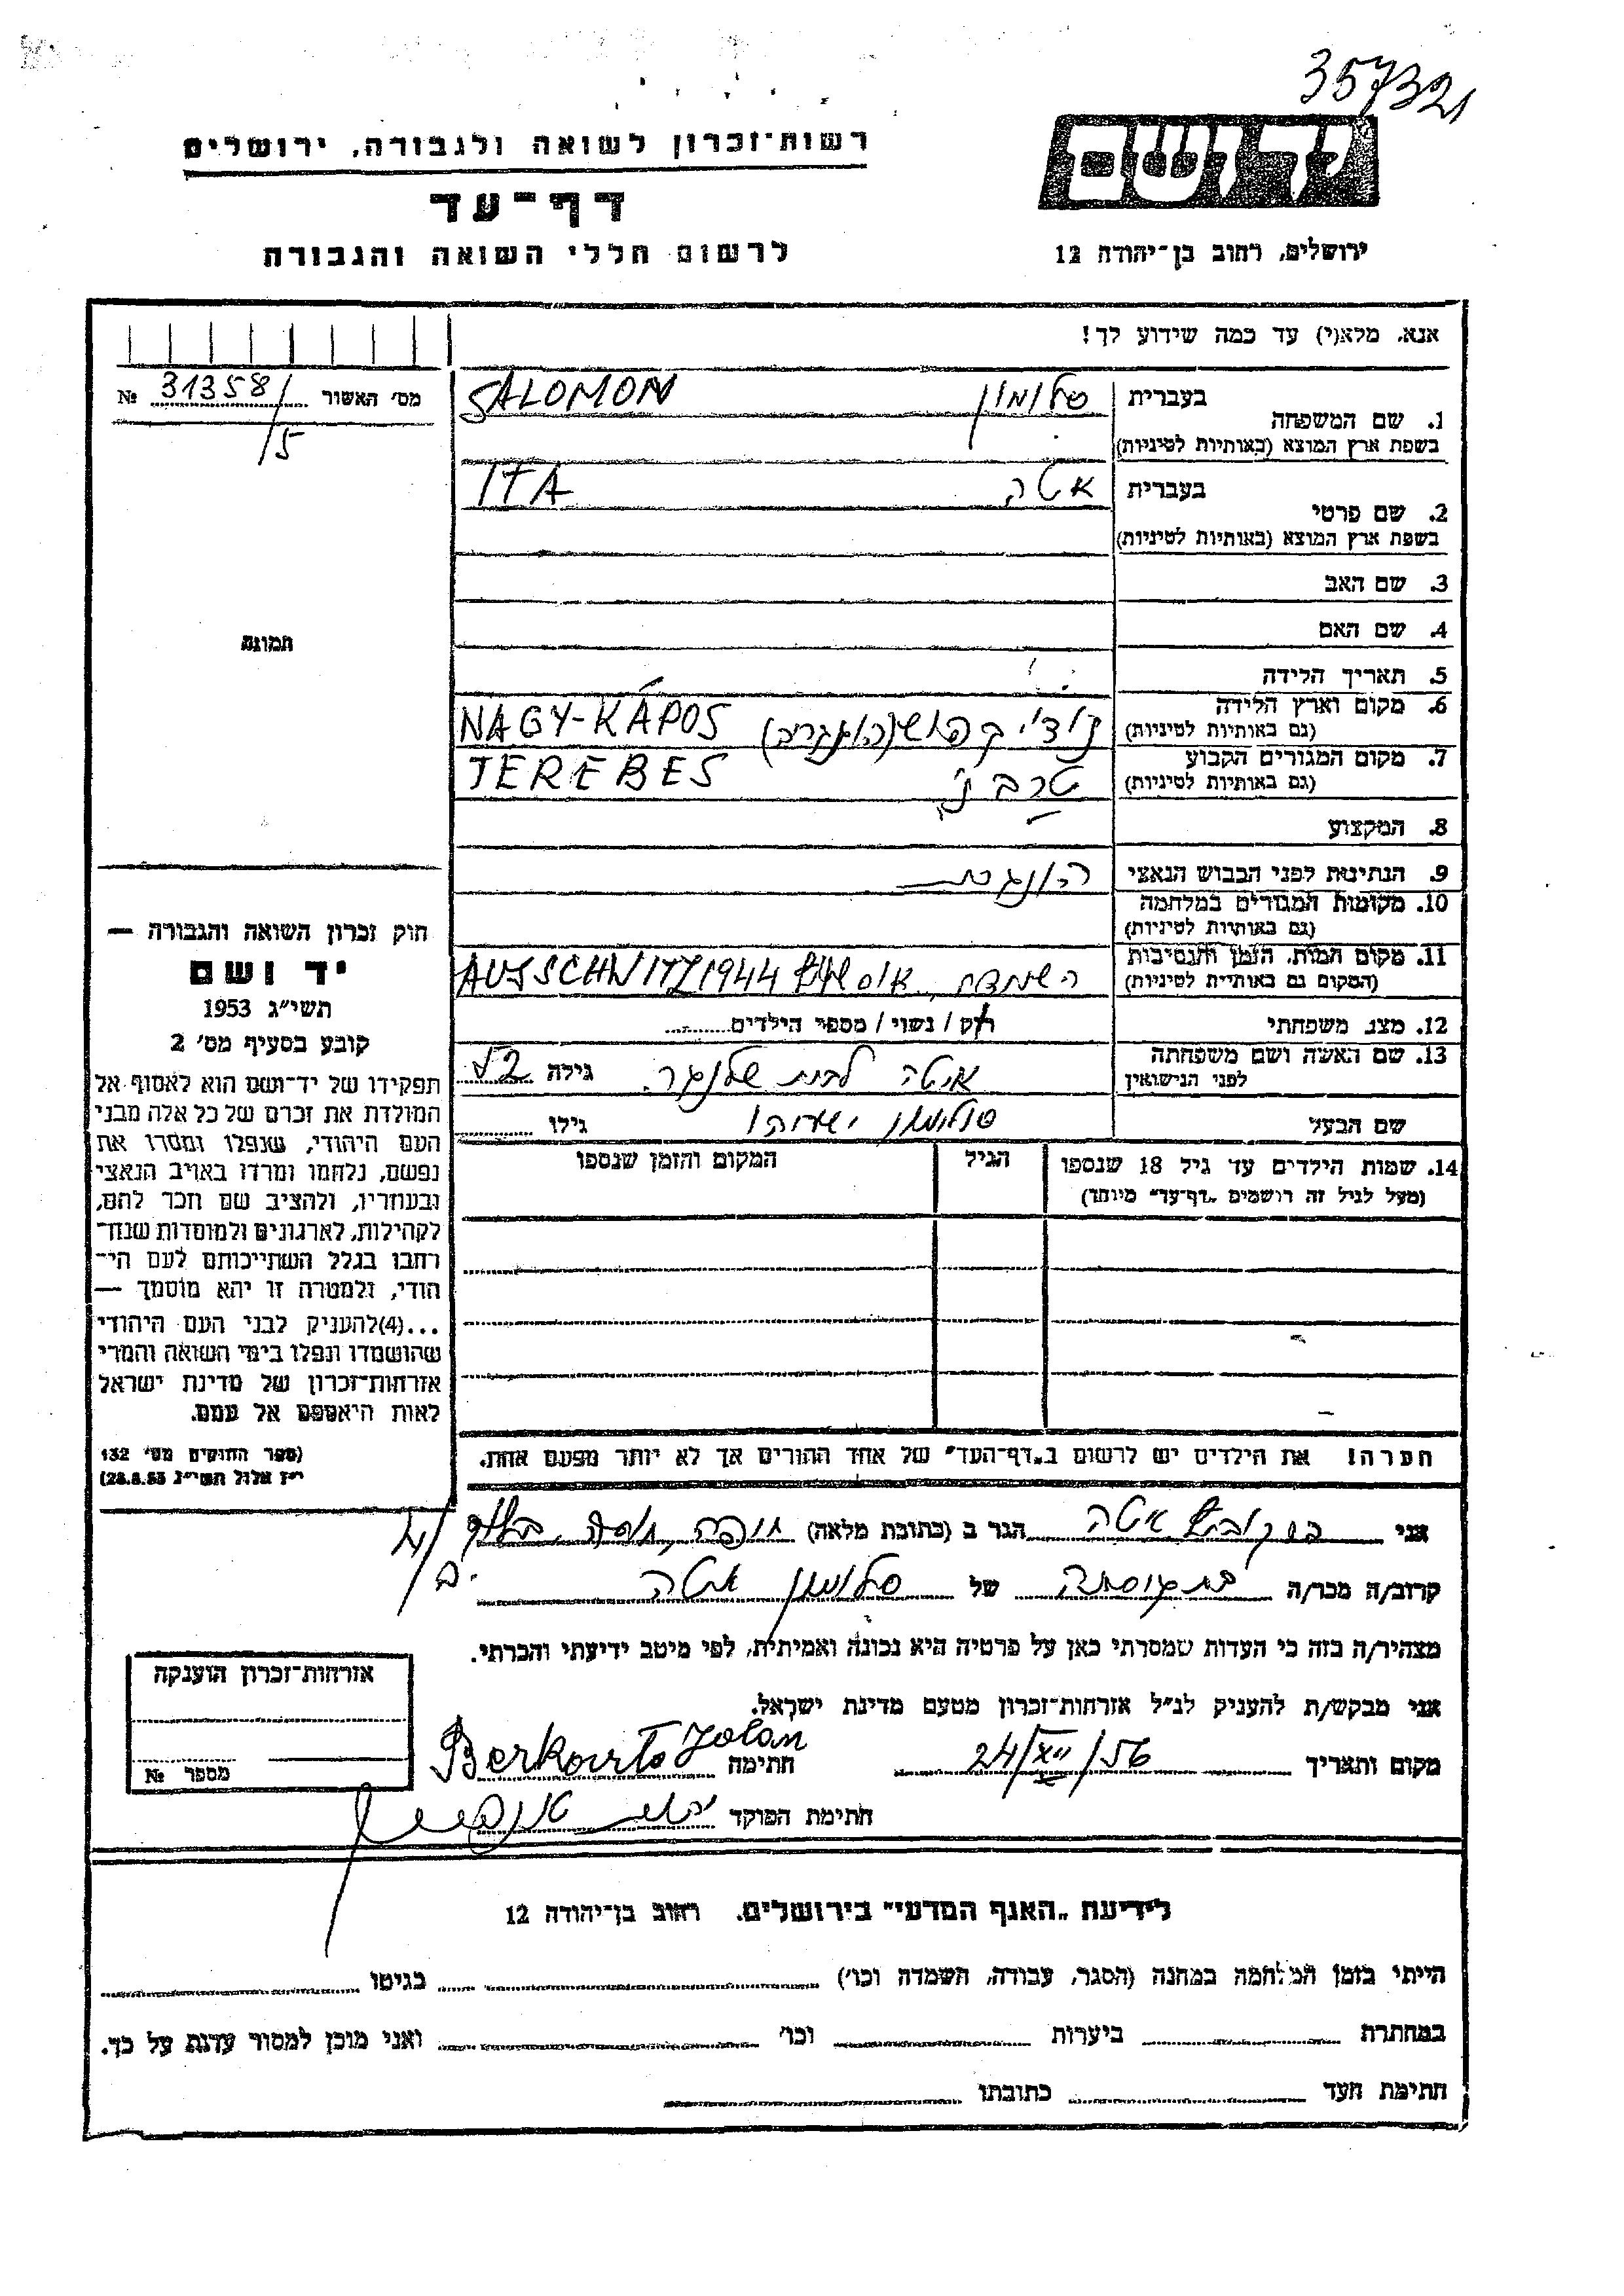 357321
רשות־זכרון לשואה ולגבורה, ירושלים
דף־עד
לרשום חללי השואה והגבורה
יד ושם
ירושלים, רחוב בן־יהודה 12
אנא, מלא(י) עד כמה שידוע לך!
מס׳ האשור № 31358/5
1. שם המשפחה
בעברית סלומון
בשפת ארץ המוצא (באותיות לטיניות) SALOMON
2. שם פרטי
בעברית איטה
בשפת ארץ המוצא (באותיות לטיניות) ITA
3. שם האב
4. שם האם
תמונה
5. תאריך הלידה
6. מקום וארץ הלידה
(גם באותיות לטיניות) NAGY-KÁPOS
7. מקום המגורים הקבוע
(גם באותיות לטיניות) TEREBES
8. המקצוע
9. הנתינות לפני הכבוש הנאצי
10. מקומות המגורים במלחמה
(גם באותיות לטיניות)
11. מקום המות, הזמן והנסיבות
(המקום גם באותיות לטיניות) AUSSCHWITZ 1944
12. מצב משפחתי רוק / נשוי / מספר הילדים
13. שם האשה ושם משפחתה
לפני הנישואין איטה לבית גילה 52
שם הבעל סלומון גילו
14. שמות הילדים עד גיל 18 שנספו הגיל המקום והזמן שנספו
(מעל לגיל זה רושמים „דף־עד״ מיוחד)
חוק זכרון השואה והגבורה —
יד ושם
תשי״ג 1953
קובע בסעיף מס׳ 2
תפקידו של יד־ושם הוא לאסוף אל
המולדת את זכרם של כל אלה מבני
העם היהודי, שנפלו ומסרו את
נפשם, נלחמו ומרדו באויב הנאצי
ובעוזריו, ולהציב שם וזכר להם,
לקהילות, לארגונים ולמוסדות שנח־
רבו בגלל השתייכותם לעם הי־
הודי, ולמטרה זו יהא מוסמך —
...(4)להעניק לבני העם היהודי
שהושמדו ונפלו בימי השואה והמרי
אזרחות־זכרון של מדינת ישראל
לאות היאספם אל עמם.
(ספר החוקים מס׳ 132
י״ז אלול תשי״ג 28.8.53)
הערה! את הילדים יש לרשום ב„דף־העד״ של אחד ההורים אך לא יותר מפעם אחת.
אני ברקוביץ איטה הגר ב (כתובת מלאה) חיפה,
קרוב/ה מכר/ה של סלומון איטה
מצהיר/ה בזה כי העדות שמסרתי כאן על פרטיה היא נכונה ואמיתית, לפי מיטב ידיעתי והכרתי.
אני מבקש/ת להעניק לנ״ל אזרחות־זכרון מטעם מדינת ישראל.
מקום ותאריך 24/XII/56 חתימה Berkovits Jolan
חתימת הפוקד
אזרחות־זכרון הוענקה
מספר №
לידיעת „האגף המדעי״ בירושלים, רחוב בן־יהודה 12
הייתי בזמן המלחמה במחנה (הסגר, עבודה, השמדה וכו׳) בגיטו
במחתרת ביערות וכו׳ ואני מוכן למסור עדות על כך.
חתימת העד כתובתו